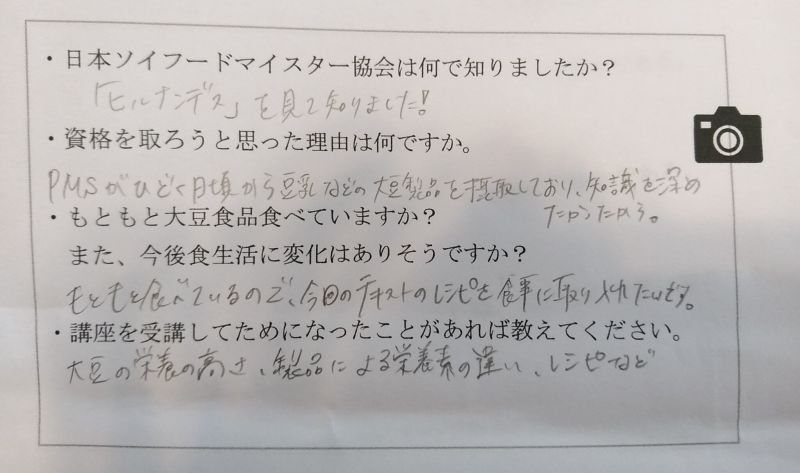 ・日本ソイフードマイスター協会は何で知りましたか？
「ヒルナンデス」を見て知りました！
・資格を取ろうと思った理由は何ですか。
PMSがひどく日頃から豆乳などの大豆製品を摂取しており、知識を深め
たかったから。
・もともと大豆食品食べていますか？
また、今後食生活に変化はありそうですか？
もともと食べているので、今回のテキストのレシピを食事に取り入れたいです。
・講座を受講してためになったことがあれば教えてください。
大豆の栄養の高さ、製品による栄養素の違い、レシピなど